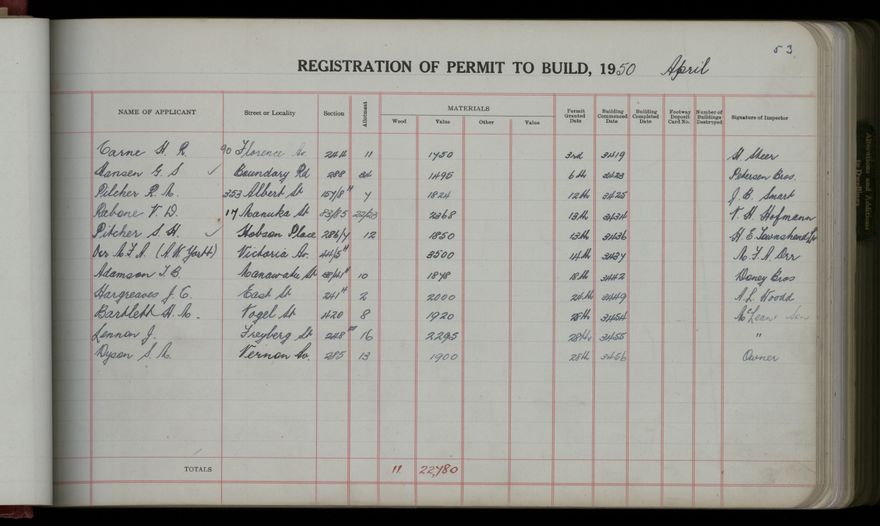 53
REGISTRATION OF PERMIT TO BUILD, 1950 April
NAME OF APPLICANT Street or Locality Section Allotment MATERIALS Permit Granted Date Building Commenced Date Building Completed Date Footway Deposit Card No. Number of Buildings Destroyed Signature of Inspector
Wood Value Other Value
Carne H. R. 90 Florence Av. 244 11 1750 3rd 3419 H Skeer
Hansen G. S ✓ Boundary Rd 288 34 1495 6th 3423 Petersen Bros.
Pilcher R. A. 353 Albert St 7 1824 12th 3425 J. B. Smart
Rebone V. D. 17 Manuka St 22/23 2368 13th 3434 V. H. Hofmann
Pitcher S. H. ✓ Hobson Place 286/4 12 1850 13th 3436 H. E. Townshend
Orr A. F. A. Victoria Av. 3500 14th 3437 A. F. A. Orr
Adamson I. B. Manawatu St 10 1878 18th 3442 Doney Bros
Hargreaves J. C. East St 241 2 2000 24th 3449 A. L. Woodd
Bartlett H. A. Vogel St 420 8 1920 28th 3454 McLean & Son
Lennon J. Freyberg St 248 16 2295 28th 3455 "
Dyson S. A. Vernon Av. 285 13 1900 28th 3456 Owner
TOTALS 11 22,780
Alterations and Additions to Dwellings